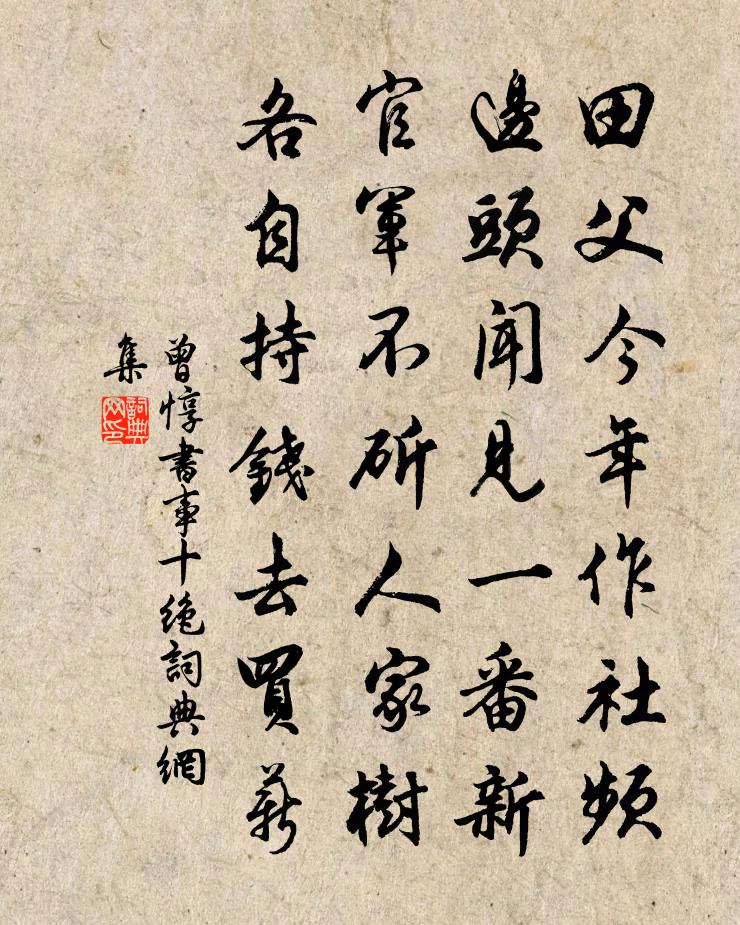 田父今年作社頻
邊頭聞見一番新
官軍不斫人家樹
各自持錢去買薪
曾惇書事十絶詞典網
集
詞典
网印